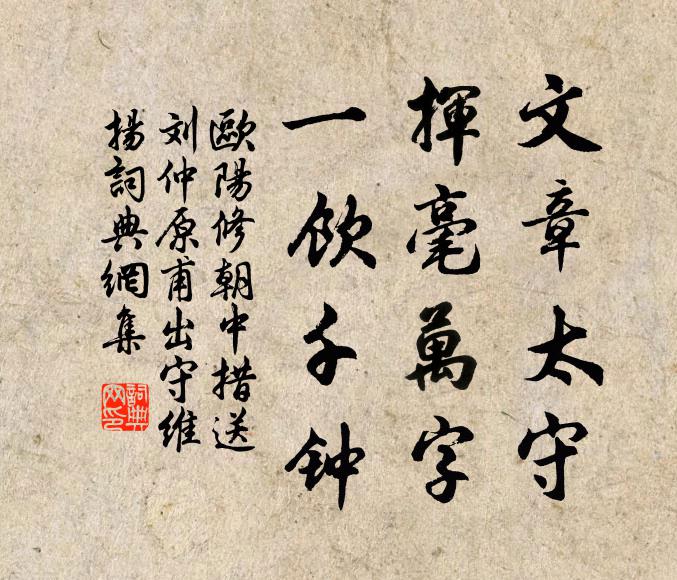 文章太守
揮毫萬字
一飲千钟
歐陽修朝中措送
刘仲原甫出守維
揚詞典網集
詞典网印